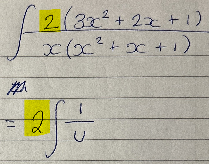 ∫ 2(3x² + 2x + 1) / x(x² + x + 1)
= 2 ∫ 1/u